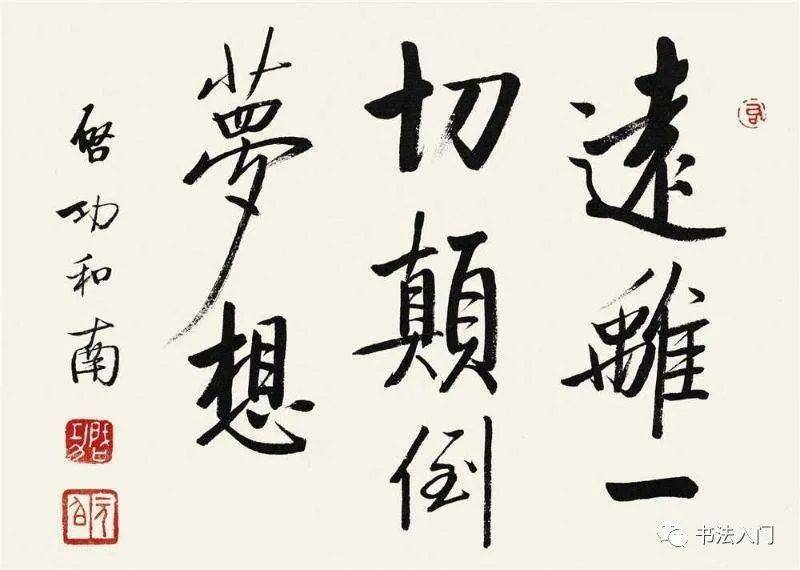 遠離一
切顛倒
夢想
啓功和南
书法入门